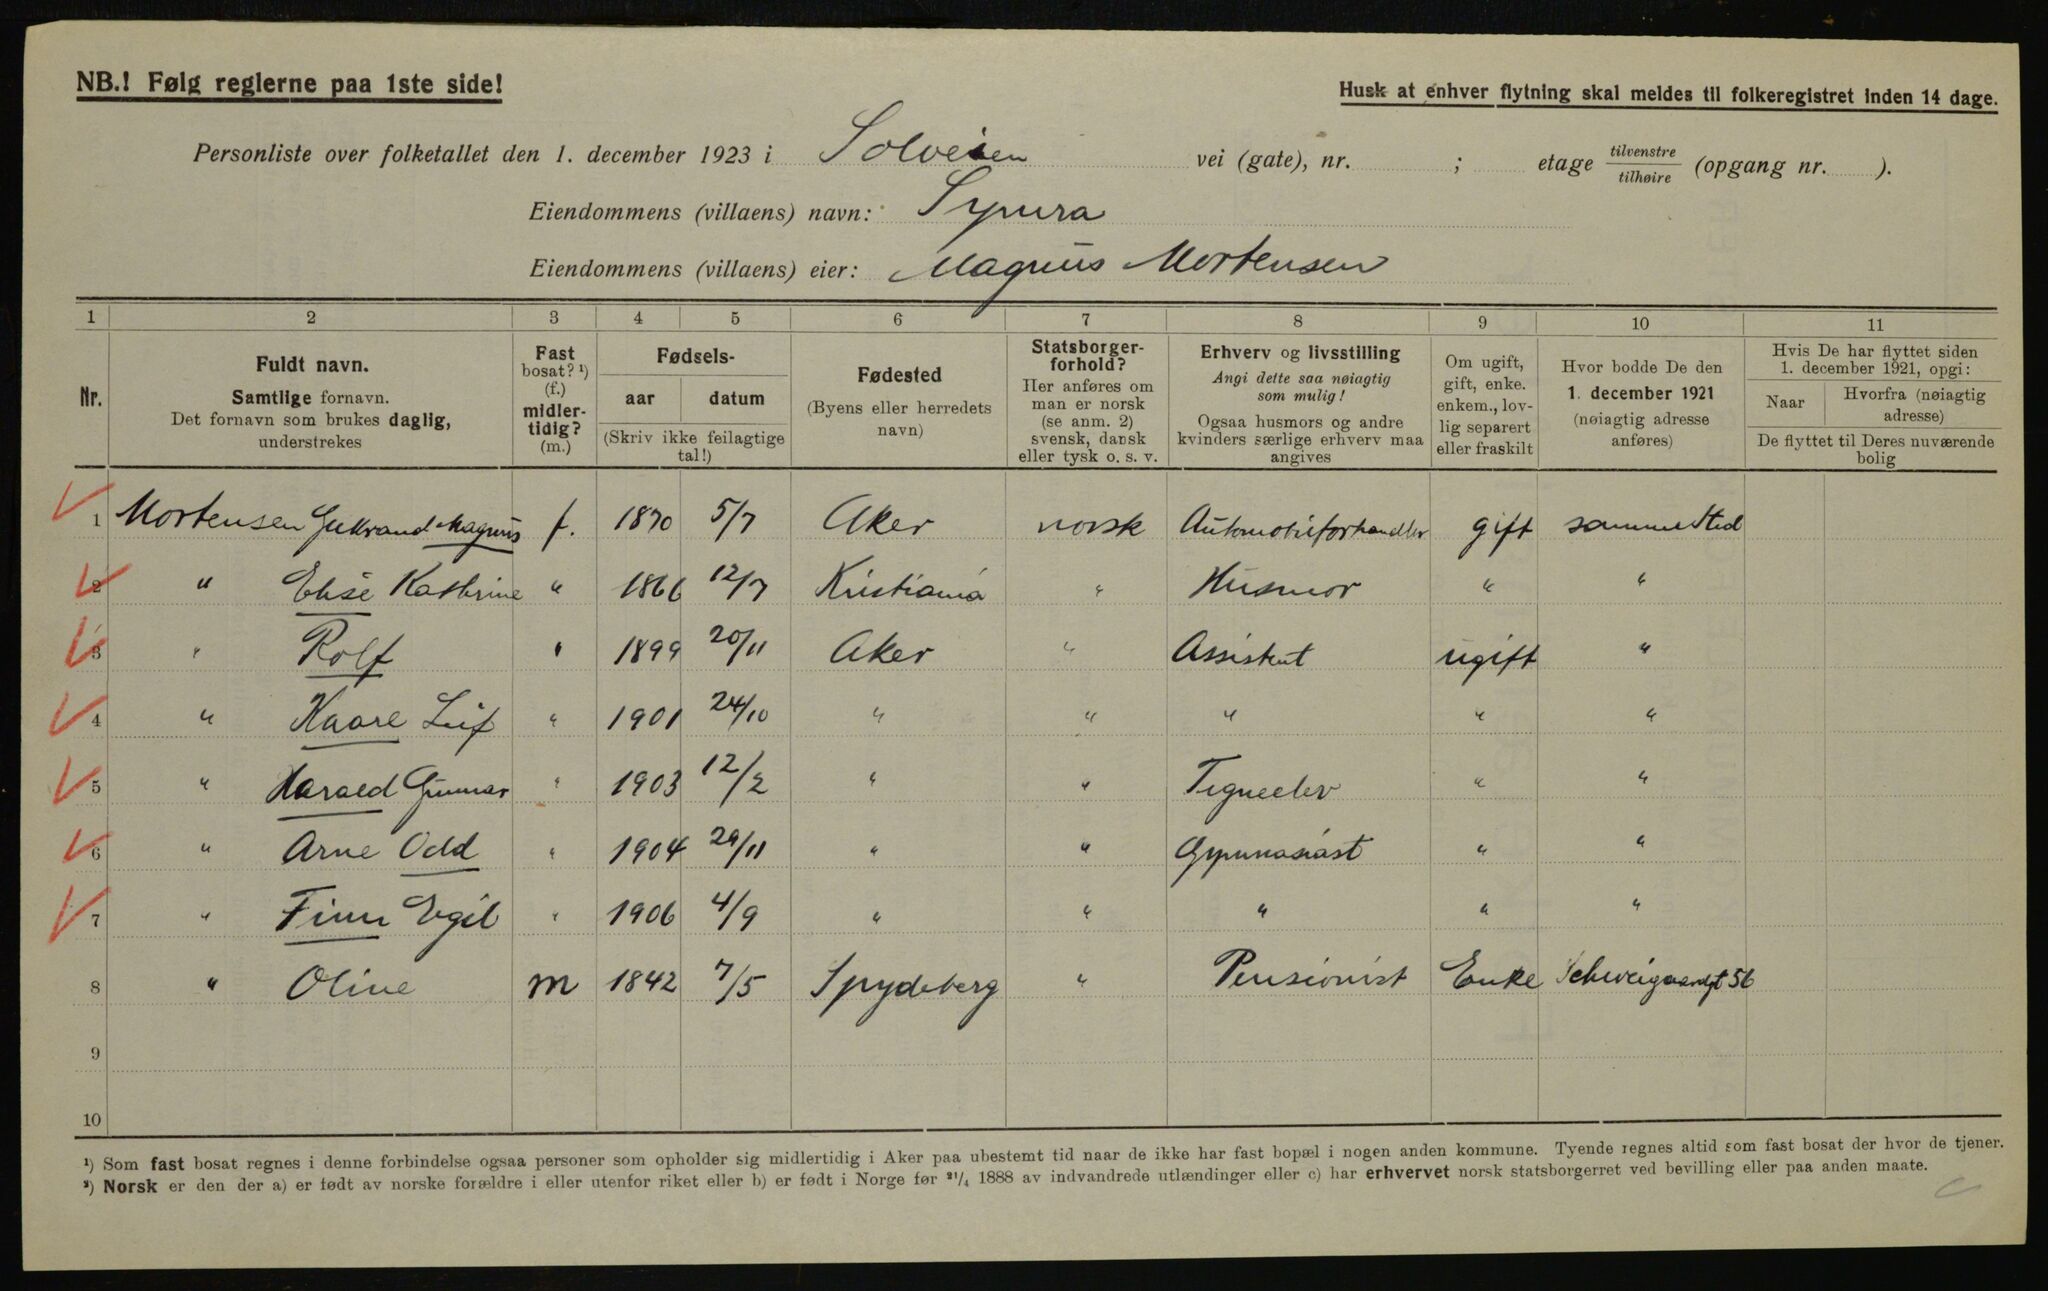 NB.! Følg reglerne paa 1ste side!
Husk at enhver flytning skal meldes til folkeregistret inden 14 dage.
Personliste over folketallet den 1. december 1923 i Solveien vei (gate), nr. ; etage tilvenstre tilhøire (opgang nr. ).
Eiendommens (villaens) navn:
Eiendommens (villaens) eier: Magnus Mortensen
1 2 3 4 5 6 7 8 9 10 11
Nr.
Fuldt navn.
Samtlige fornavn.
Det fornavn som brukes daglig, understrekes
Fast bosat? ¹) (f.) midler-tidig? (m.)
Fødsels-
aar datum
(Skriv ikke feilagtige tal!)
Fødested
(Byens eller herredets navn)
Statsborger-forhold?
Her anføres om man er norsk (se anm. 2) svensk, dansk eller tysk o. s. v.
Erhverv og livsstilling
Angi dette saa nøiagtig som mulig!
Ogsaa husmors og andre kvinders særlige erhverv maa angives
Om ugift, gift, enke. enkem., lov-lig separert eller fraskilt
Hvor bodde De den 1. december 1921 (nøiagtig adresse anføres)
Hvis De har flyttet siden 1. december 1921, opgi:
Naar Hvorfra (nøiagtig adresse)
De flyttet til Deres nuværende bolig
1 Mortensen Gulbrand Magnus f. 1870 5/7 Aker norsk Automobilforhandler gift sammested
2 " Elise Kathrine " 1866 12/7 Kristiania " Husmor " "
3 " Rolf " 1899 20/11 Aker " Assistent ugift "
4 " Kaare Leif " 1901 24/10 " " " " "
5 " Harald Gunnar " 1903 12/2 " " Tegneelev " "
6 " Arne Odd " 1904 29/11 " " Gymnasiast " "
7 " Finn Egil " 1906 4/9 " " " " "
8 " Oline m 1842 7/5 Spydeberg " Pensionist Enke Schweigaardgt 56
9
10
¹) Som fast bosat regnes i denne forbindelse ogsaa personer som opholder sig midlertidig i Aker paa ubestemt tid naar de ikke har fast bopæl i nogen anden kommune. Tyende regnes altid som fast bosat der hvor de tjener.
²) Norsk er den der a) er født av norske forældre i eller utenfor riket eller b) er født i Norge før ²¹/₄ 1888 av indvandrede utlændinger eller c) har erhvervet norsk statsborgerret ved bevilling eller paa anden maate.